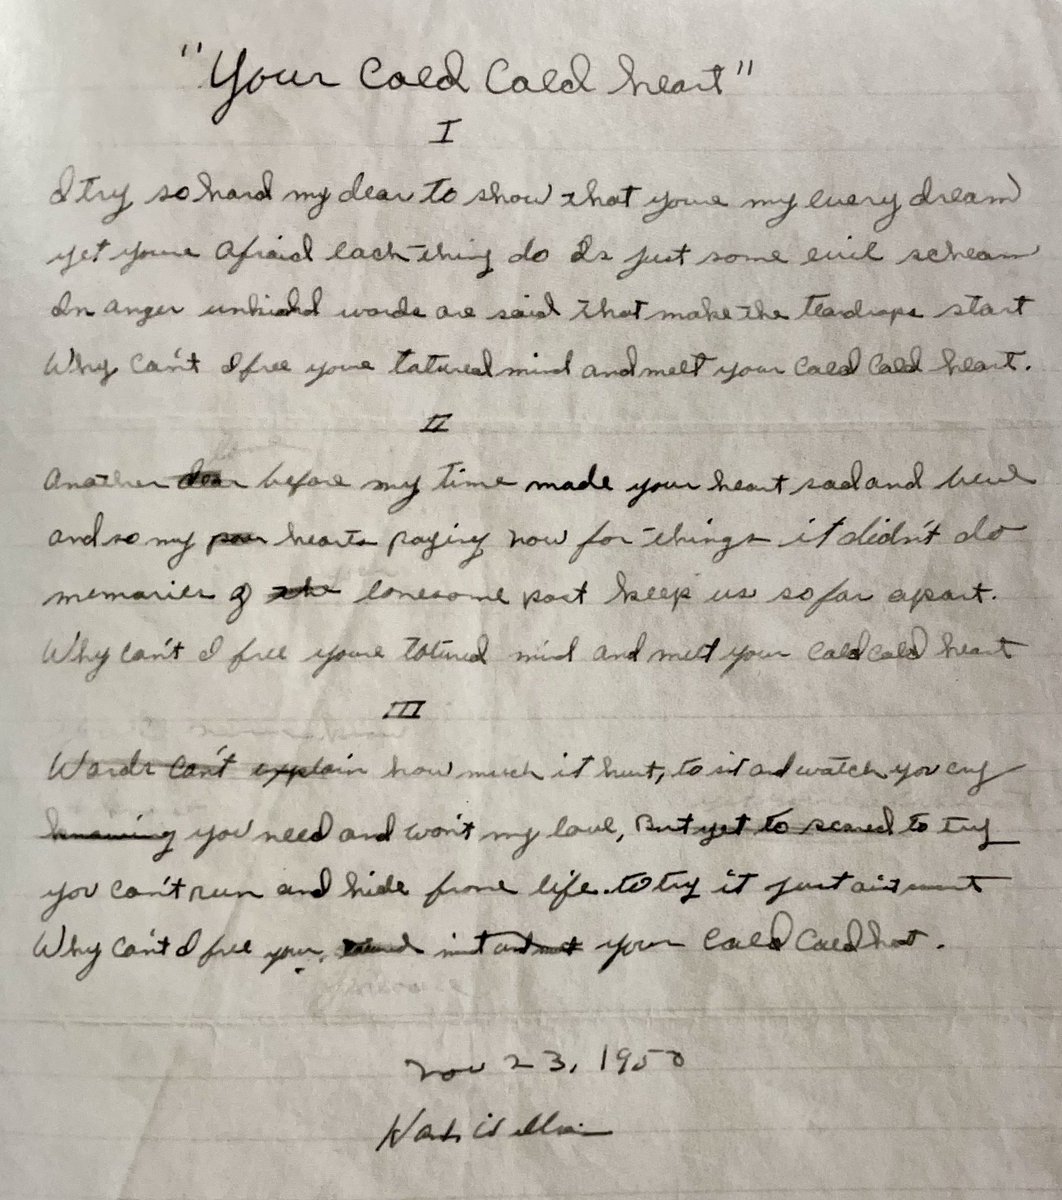 "Your Cold Cold heart"
I
I try so hard my dear to show that youre my every dream
yet youre afraid each thing do Is just some evil scheam
In anger unkidd words are said that make the teardrops start
Why Can't I free youre tatured mind and melt your Cold Cold heart.
II
Another before my time made your heart sad and blue
and so my hearts paying now for things it didn't do
memories of lonesome past keep us so far apart.
Why Can't I free youre totured mind and melt your cold cold heart
III
Words can't explain how much it hurt, to sit and watch you cry
knowing you need and won't my love, But yet to scared to try
you can't run and hide frome life. to try it just
Why Can't I free your your Cold Cold hat.
Nov 23, 1950
Hank Williams